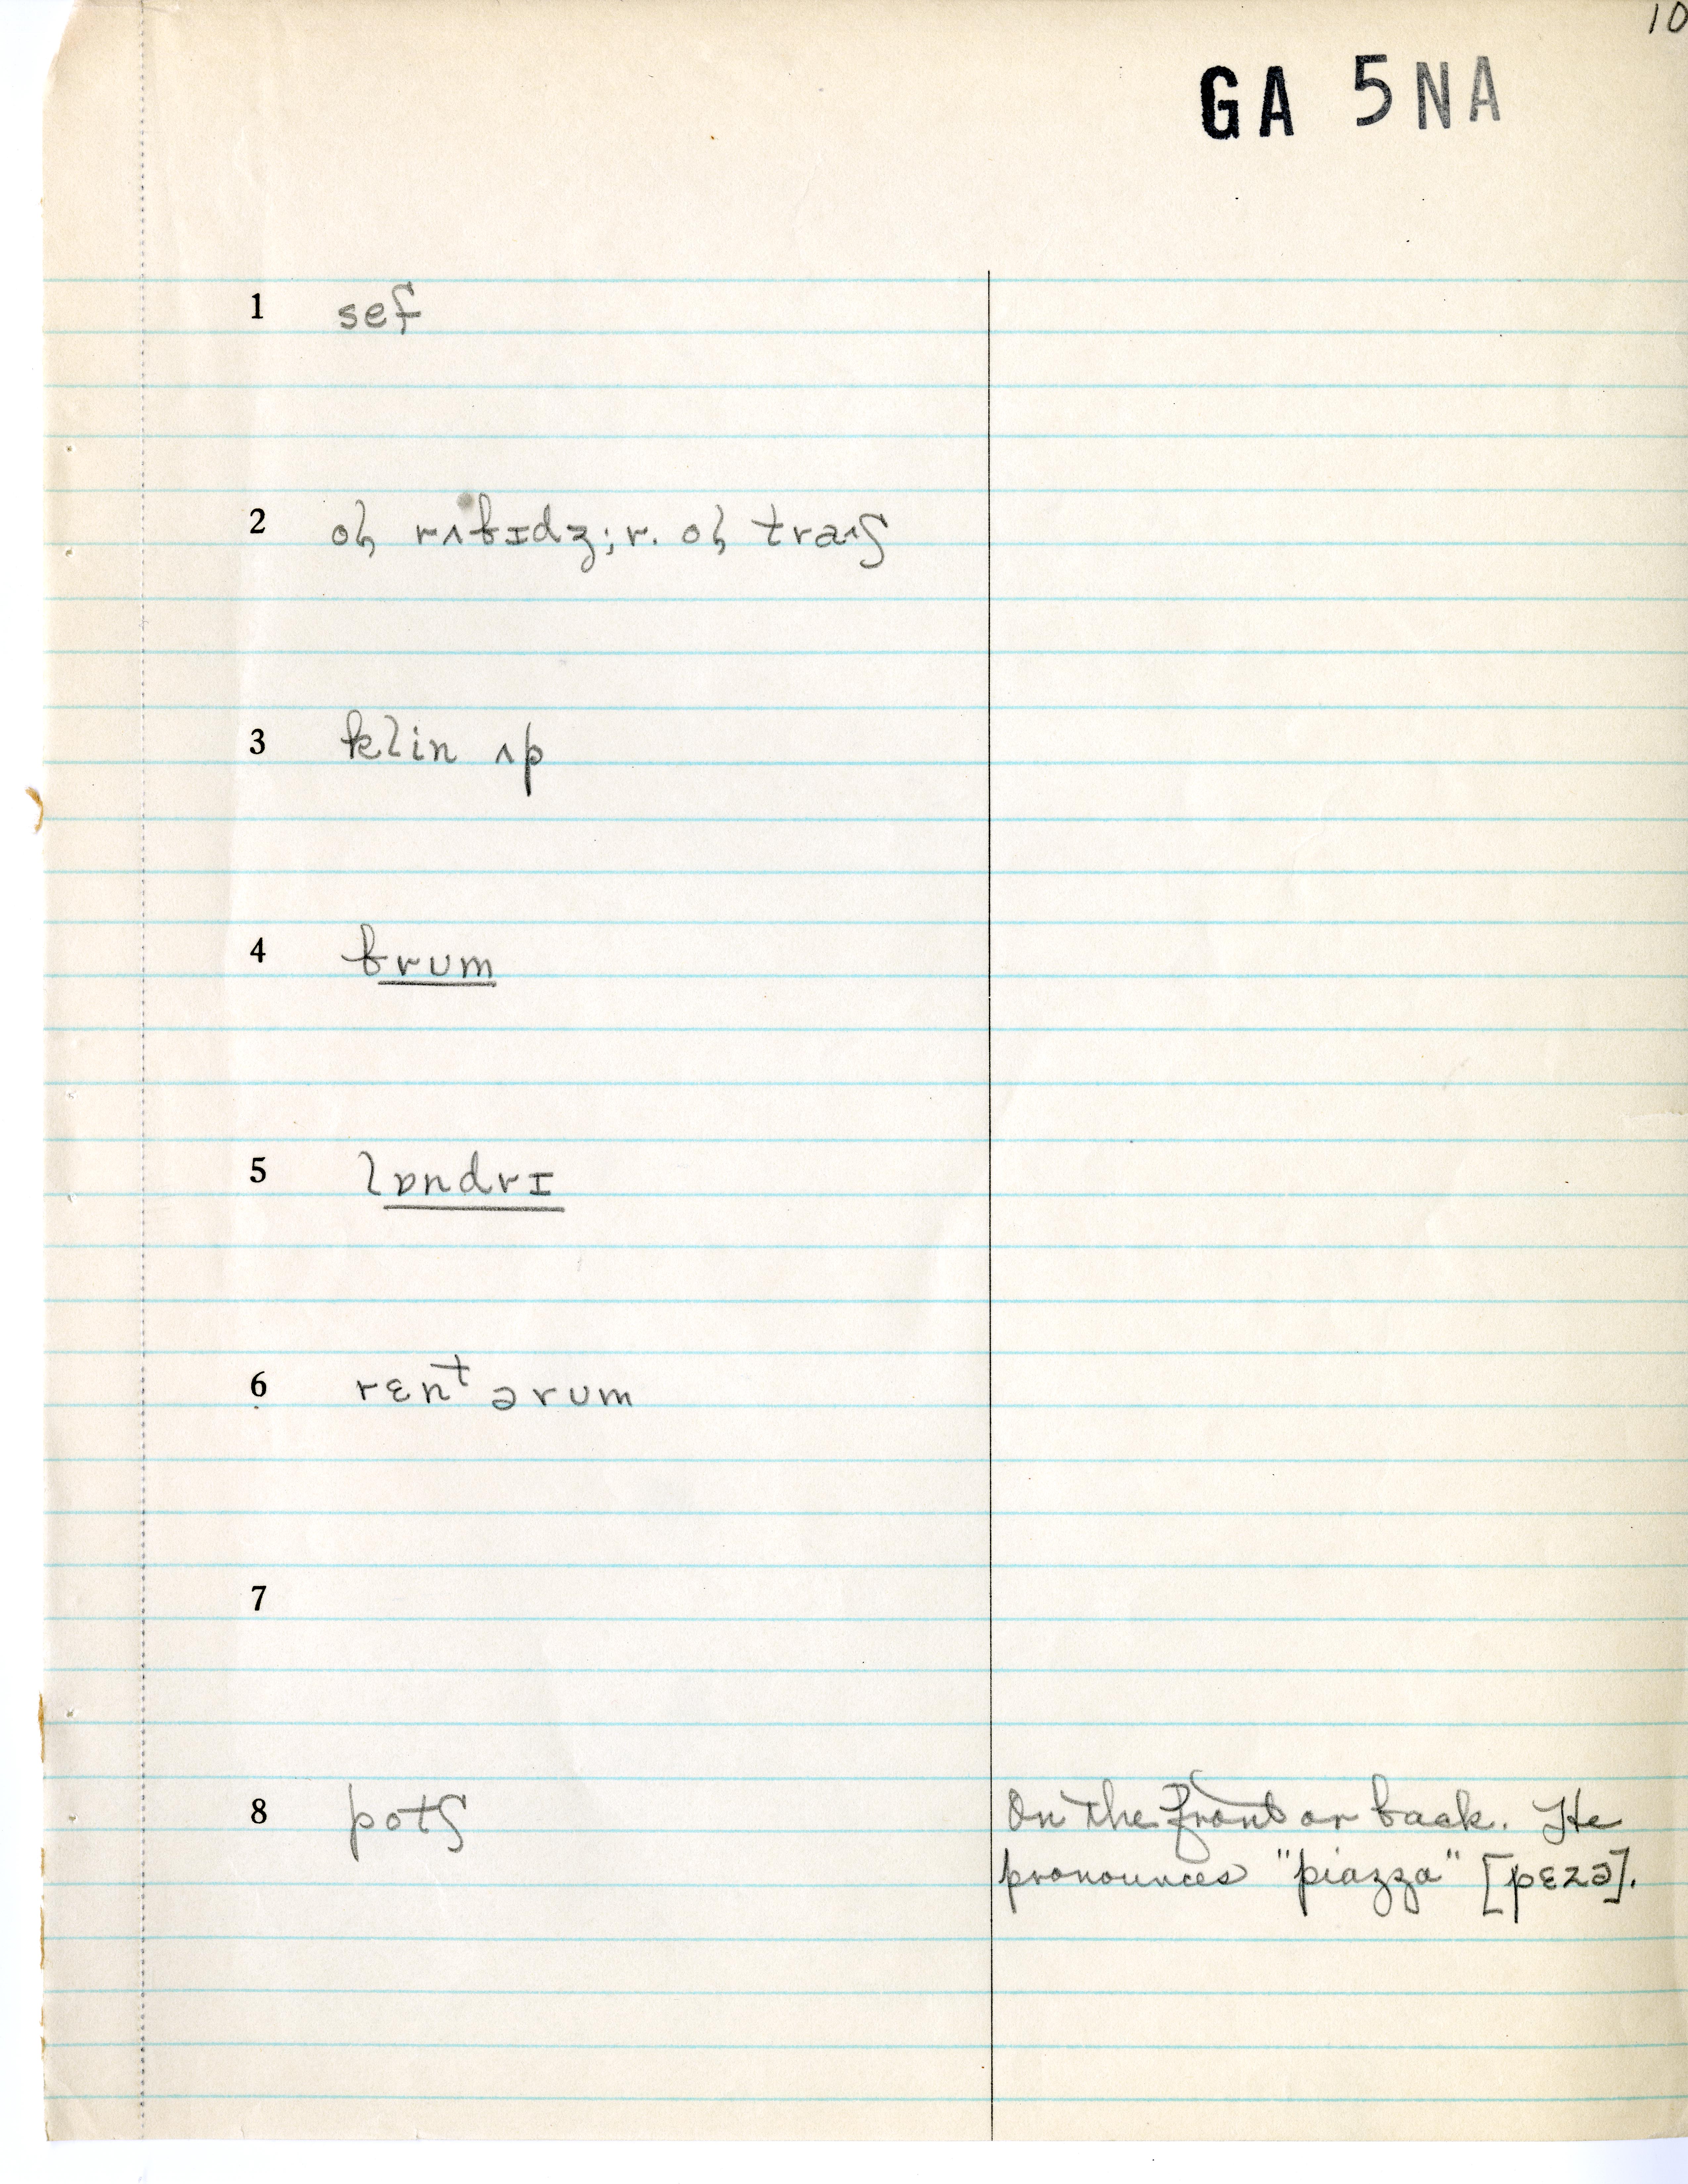 10
GA 5NA
1 sef
2 oɫ rʌbɪdʒ; r. oɫ traʌʃ
3 klin ʌp
4 brᴜm
5 lɒndrɪ
6 rɛnᵗ ərᴜm
7
8 potʃ
On the front or back. He
pronounces "piazza" [pɛzə].